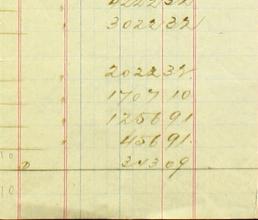 302232
202232
1707 10
125691
45691
34309
10
10